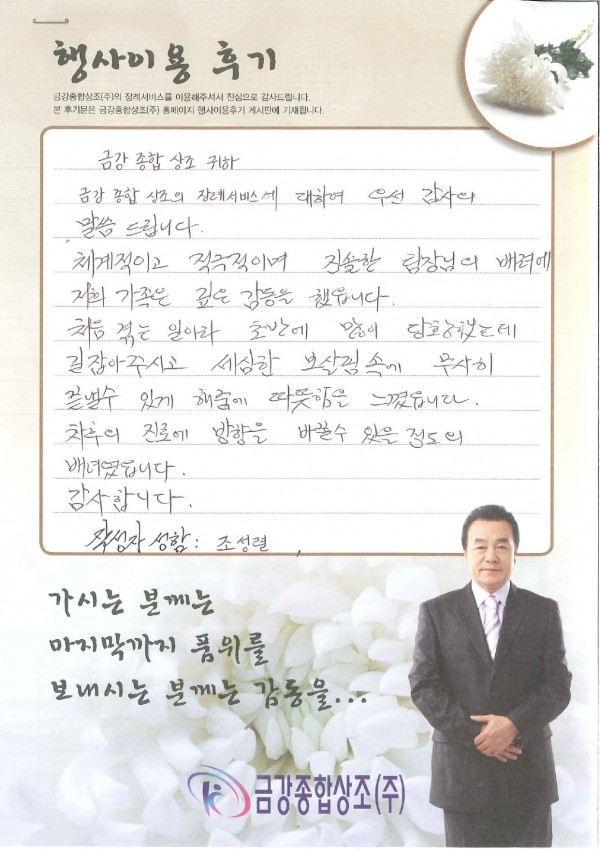 행사이용 후기
금강종합상조(주)의 장례서비스를 이용해주셔서 진심으로 감사드립니다.
본 후기문은 금강종합상조(주) 홈페이지 행사이용후기 게시판에 기재됩니다.
금강 종합 상조 귀하
금강 종합 상조의 장례서비스에 대하여 우선 감사의
말씀 드립니다.
체계적이고 적극적이며 진솔한 팀장님의 배려에
저희 가족은 깊은 감동을 했읍니다.
처음 겪는 일이라 초반에 많이 당황했는데
길잡아주시고 세심한 보살핌 속에 무사히
끝낼수 있게 해줌에 따뜻함을 느꼈읍니다.
차후의 진로에 방향을 바꿀수 있을 정도의
배녀였읍니다.
감사합니다.
작성자 성함 : 조성렬
가시는 분께는
마지막까지 품위를
보내시는 분께는 감동을...
금강종합상조(주)